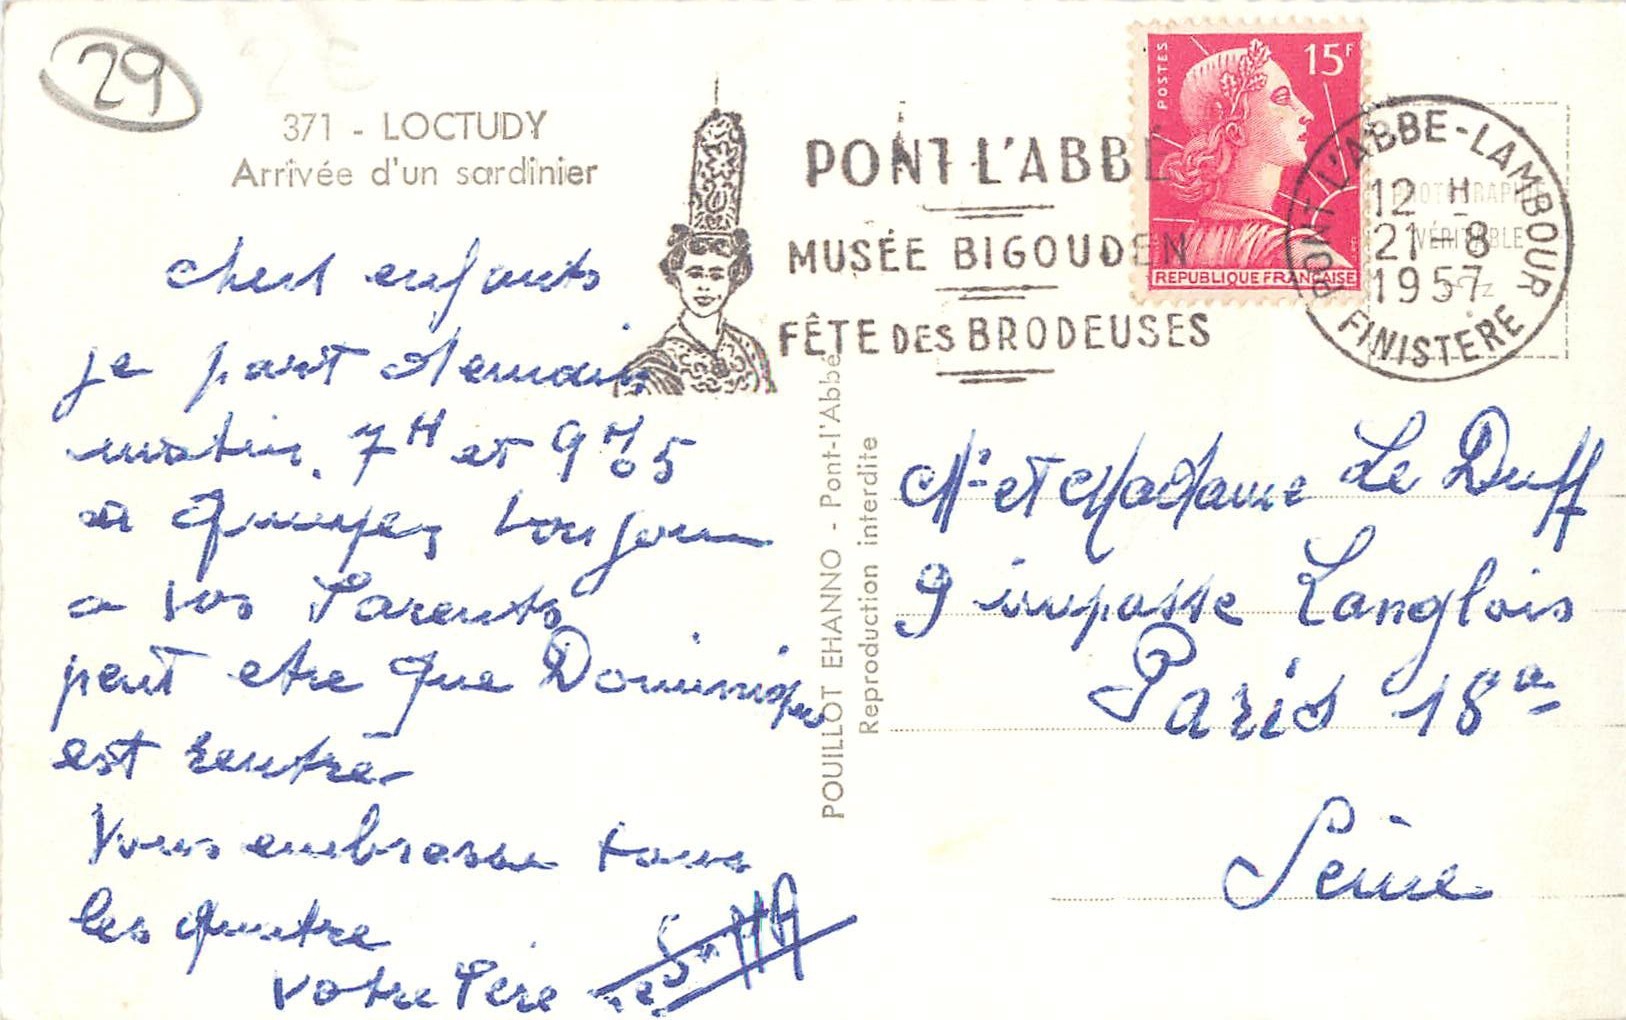 29
371 - LOCTUDY
Arrivée d'un sardinier
PONT-L'ABBÉ
MUSÉE BIGOUDEN
FÊTE DES BRODEUSES
POSTES
15F
REPUBLIQUE FRANÇAISE
PONT L'ABBE-LAMBOUR
12 H
21-8
1957
FINISTERE
PHOTOGRAPHIE
VÉRITABLE
chers enfants
je part demain
matin. 7H et 9H05
a Quimper, toujours
a vos Parents
peut etre que Dominique
est rentré
Vous embrasse tous
les quatre
votre Père
POUILLOT EHANNO - Pont-l'Abbé
Reproduction interdite
Mr et Madame Le Duff
9 impasse Langlois
Paris 18e
Seine